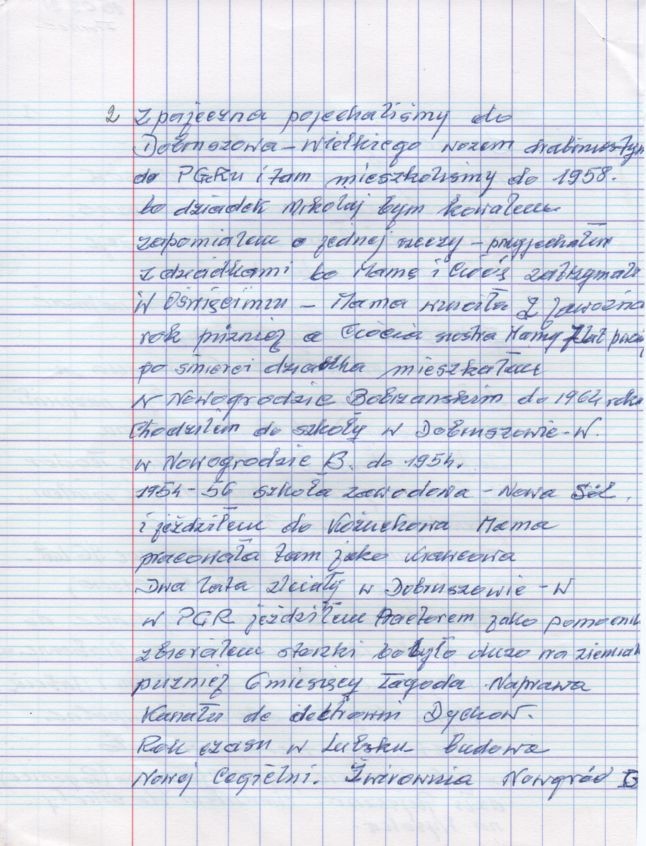 2 z pajęczna pojechaliśmy do
Dobruszowa - Wielkiego wozem drabiniastym
do PGRu i tam mieszkoliśmy do 1958.
bo dziadek Mikołaj bym kowalem
zapomiałem o jednej rzeczy - przyjechałem
z dziadkami bo Mamę i Ciocię zatrzymali
w Oświęcimiu - Mama wruciła z Jaworzna
rok pizniej a Ciocia sostra Mamy 7 lat
po śmierci dziadka mieszkałem
w Nowogrodzie Bobrzanskim do 1964 roku
Chodziłem do szkoły w Dobruszowie - W.
w Nowogrodzie B. do 1954.
1954 - 56 szkoła zawodowa - Nowa Sól.
i jeździłem do Kożuchowa Mama
pracowała tam jako krawcowa
Dwa lata zleciały w Dobruszowie - W
w PGR jeździłem tractorem jako pomocnik
zbierałem storzki bo było duzo na ziemiah
puzniej 6 miesięcy Łagoda Naprawa
Kanału do elektrowni Dychow.
Rok czasu w Lubsku budowa
Nowej Cegielni. Żwirownia Nowgród B